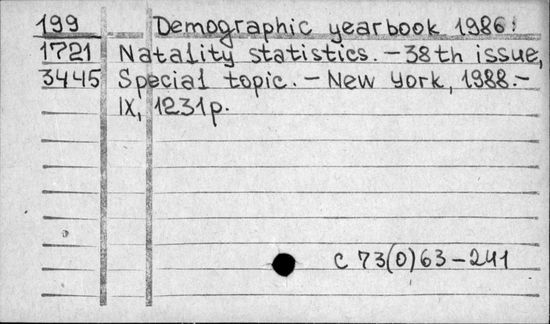 199 Demographic yearbook 1986:
1721 Natality statistics. – 38th issue,
3445 Special topic. – New York, 1988. –
IX, 1231p.
C 73(0)63 – 241